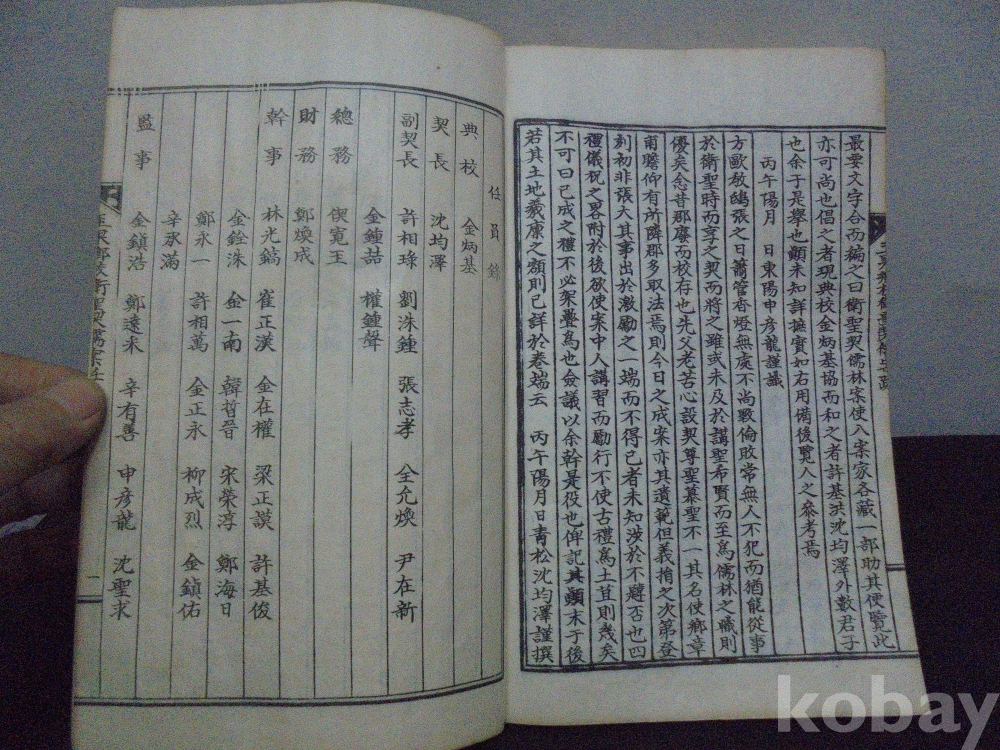 最要文字合而編之曰衛聖契儒林案使入案家各藏一部助其便覽此
亦可尚也倡之者現典校金炳基協而和之者許基洪沈均澤外數君子
也余于是擧也顧未知詳摭實如右用備後覽人之參考焉
丙午陽月 日東陽申彦龍謹識
方歐敎鴟張之日蕭管香燈無處不尚斁倫敗常無人不犯而猶能從事
於衛聖時而享之契而將之雖或未及於講聖希賢而至爲儒林之職則
優矣念昔那廢而校存也先父老苦心設契尊聖慕聖不一其名使鄕章
甫瞻仰有所隣郡多取法焉則今日之成案亦其遺範但義捐之次第登
刊初非張大其事出於激勵之一端而不得已者未知涉於不韙否也四
禮儀祝之畧附於後欲使案中人講習而勵行不使古禮爲土苴則幾矣
不可曰已成之禮不必架疊爲也僉議以余幹是役也俾記其顚末于後
若其土地羲庫之類則已詳於卷端云 丙午陽月日靑松沈均澤謹撰
任員錄
典校 金炳基
契長 沈均澤
副契長 許相琭 劉洙鍾 張志孝 全允煥 尹在新
金鍾喆 權鍾聲
總務 偰寬王
財務 鄭煥成
幹事 林光鎬 崔正漢 金在權 梁正謨 許基俊
金銓洙 金一南 韓晢晉 宋榮淳 鄭海日
鄭永一 許相萬 金正永 柳成烈 金鎭佑
辛永滿
監事 金鎭浩 鄭遠采 辛有善 申彦龍 沈聖求
一
kobay